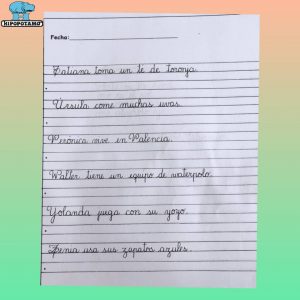 HIPOPOZAMO
Fecha:
Tatiana toma un té de toronja.
Úrsula come muchas uvas.
Verónica vive en Valencia.
Walter tiene un equipo de waterpolo.
Yolanda juega con su yoyo.
Zenia usa sus zapatos azules.